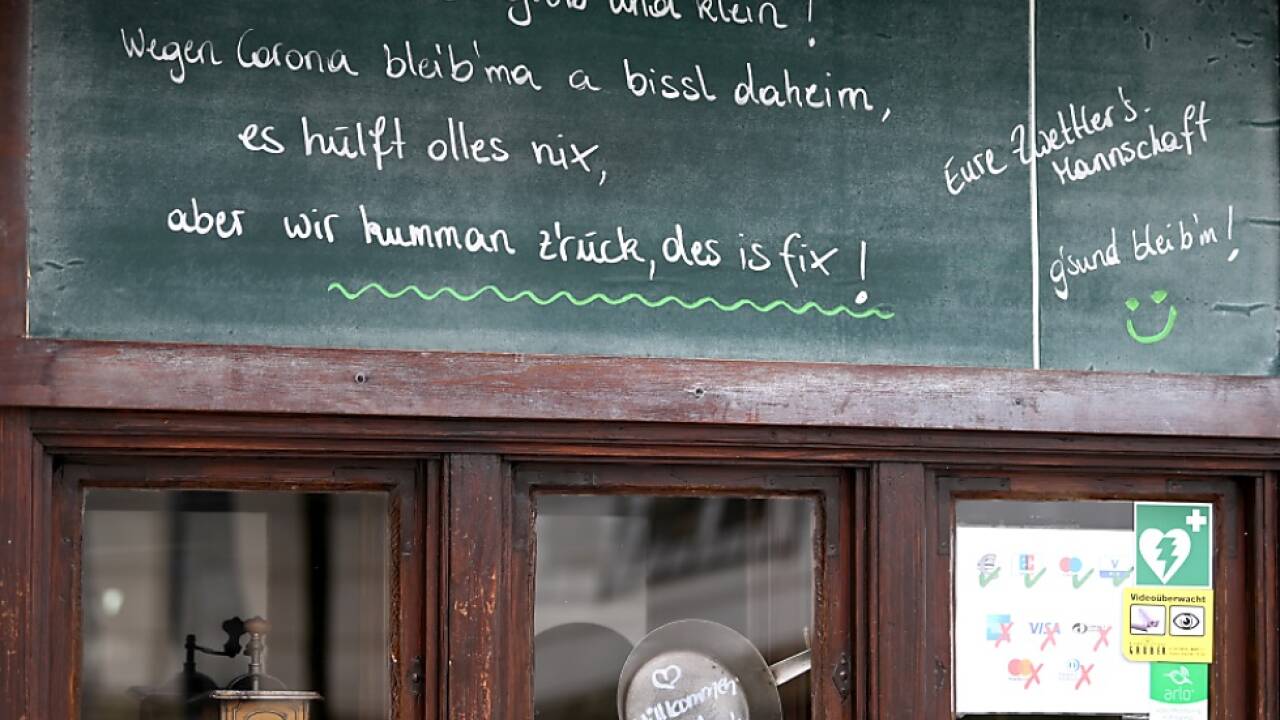 und klein!
Wegen Corona bleib'ma a bissl daheim,
es hülft olles nix,
aber wir kumman z'rück, des is fix!
Eure Zwettler's-
Mannschaft
g'sund bleib'm!
VISA
Videoüberwacht
GRUBER
arlo